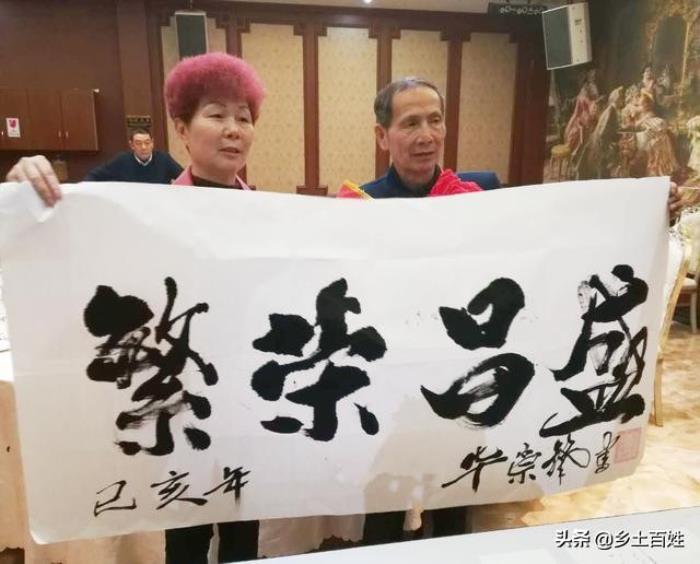 繁荣昌盛
己亥年
书
头条 @乡土百姓